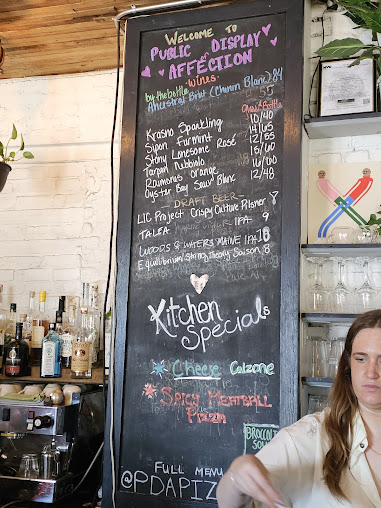 WELCOME TO
PUBLIC DISPLAY
of
AFFECTION
· Wines ·
by the bottle
Ancestral Brut (Chenin Blanc) 84
55
Glass/Bottle
Krasno Sparkling 10/40
Sipon Furmint 14/65
Stony Lonesome Rosé 12/55
Tarpan Nebbiolo 15/60
Raumonis Orange 16/60
Oyster Bay Sauv Blanc 12/48
DRAFT BEER
LIC Project Crispy Culture Pilsner 8
TALEA IPA 9
WOODS & WATERS MAINE IPA 10
Equilibrium String Theory Saison 8
Kitchen
Specials
Cheese Calzone
Spicy Meatball
Pizza
BROCCOLI
SOUP
FULL MENU
@PDAPIZ